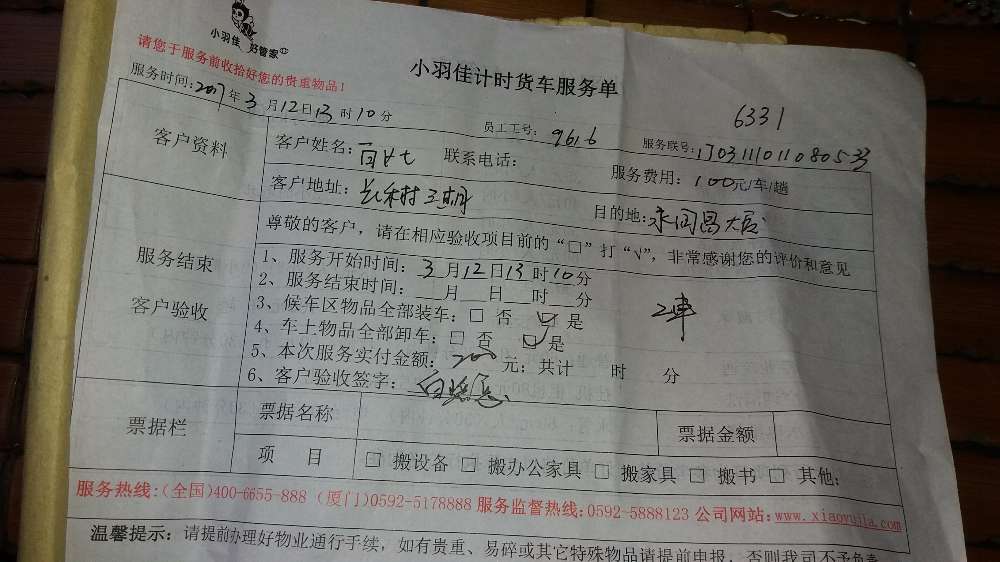 小羽佳 好管家
请您于服务前收拾好您的贵重物品!
小羽佳计时货车服务单
6331
服务时间:2017年3月12日13时10分 员工工号: 9616 服务联号:
客户资料
客户姓名: 联系电话: 服务费用: 100元/车/趟
客户地址: 目的地:
尊敬的客户,请在相应验收项目前的“□”打“√”,非常感谢您的评价和意见
服务结束
客户验收
1、服务开始时间: 3月12日13时10分
2、服务结束时间: 月 日 时 分
3、候车区物品全部装车: □ 否 ☑ 是 2车
4、车上物品全部卸车: □ 否 ☑ 是
5、本次服务实付金额: 200 元; 共计 时 分
6、客户验收签字:
票据栏
票据名称 票据金额
项 目 □ 搬设备 □ 搬办公家具 □ 搬家具 □ 搬书 □ 其他:
服务热线:(全国)400-6655-888 (厦门)0592-5178888 服务监督热线:0592-5888123 公司网站:www.xiaoyujia.com
温馨提示: 请提前办理好物业通行手续,如有贵重、易碎或其它特殊物品请提前申报,否则我司不予负责